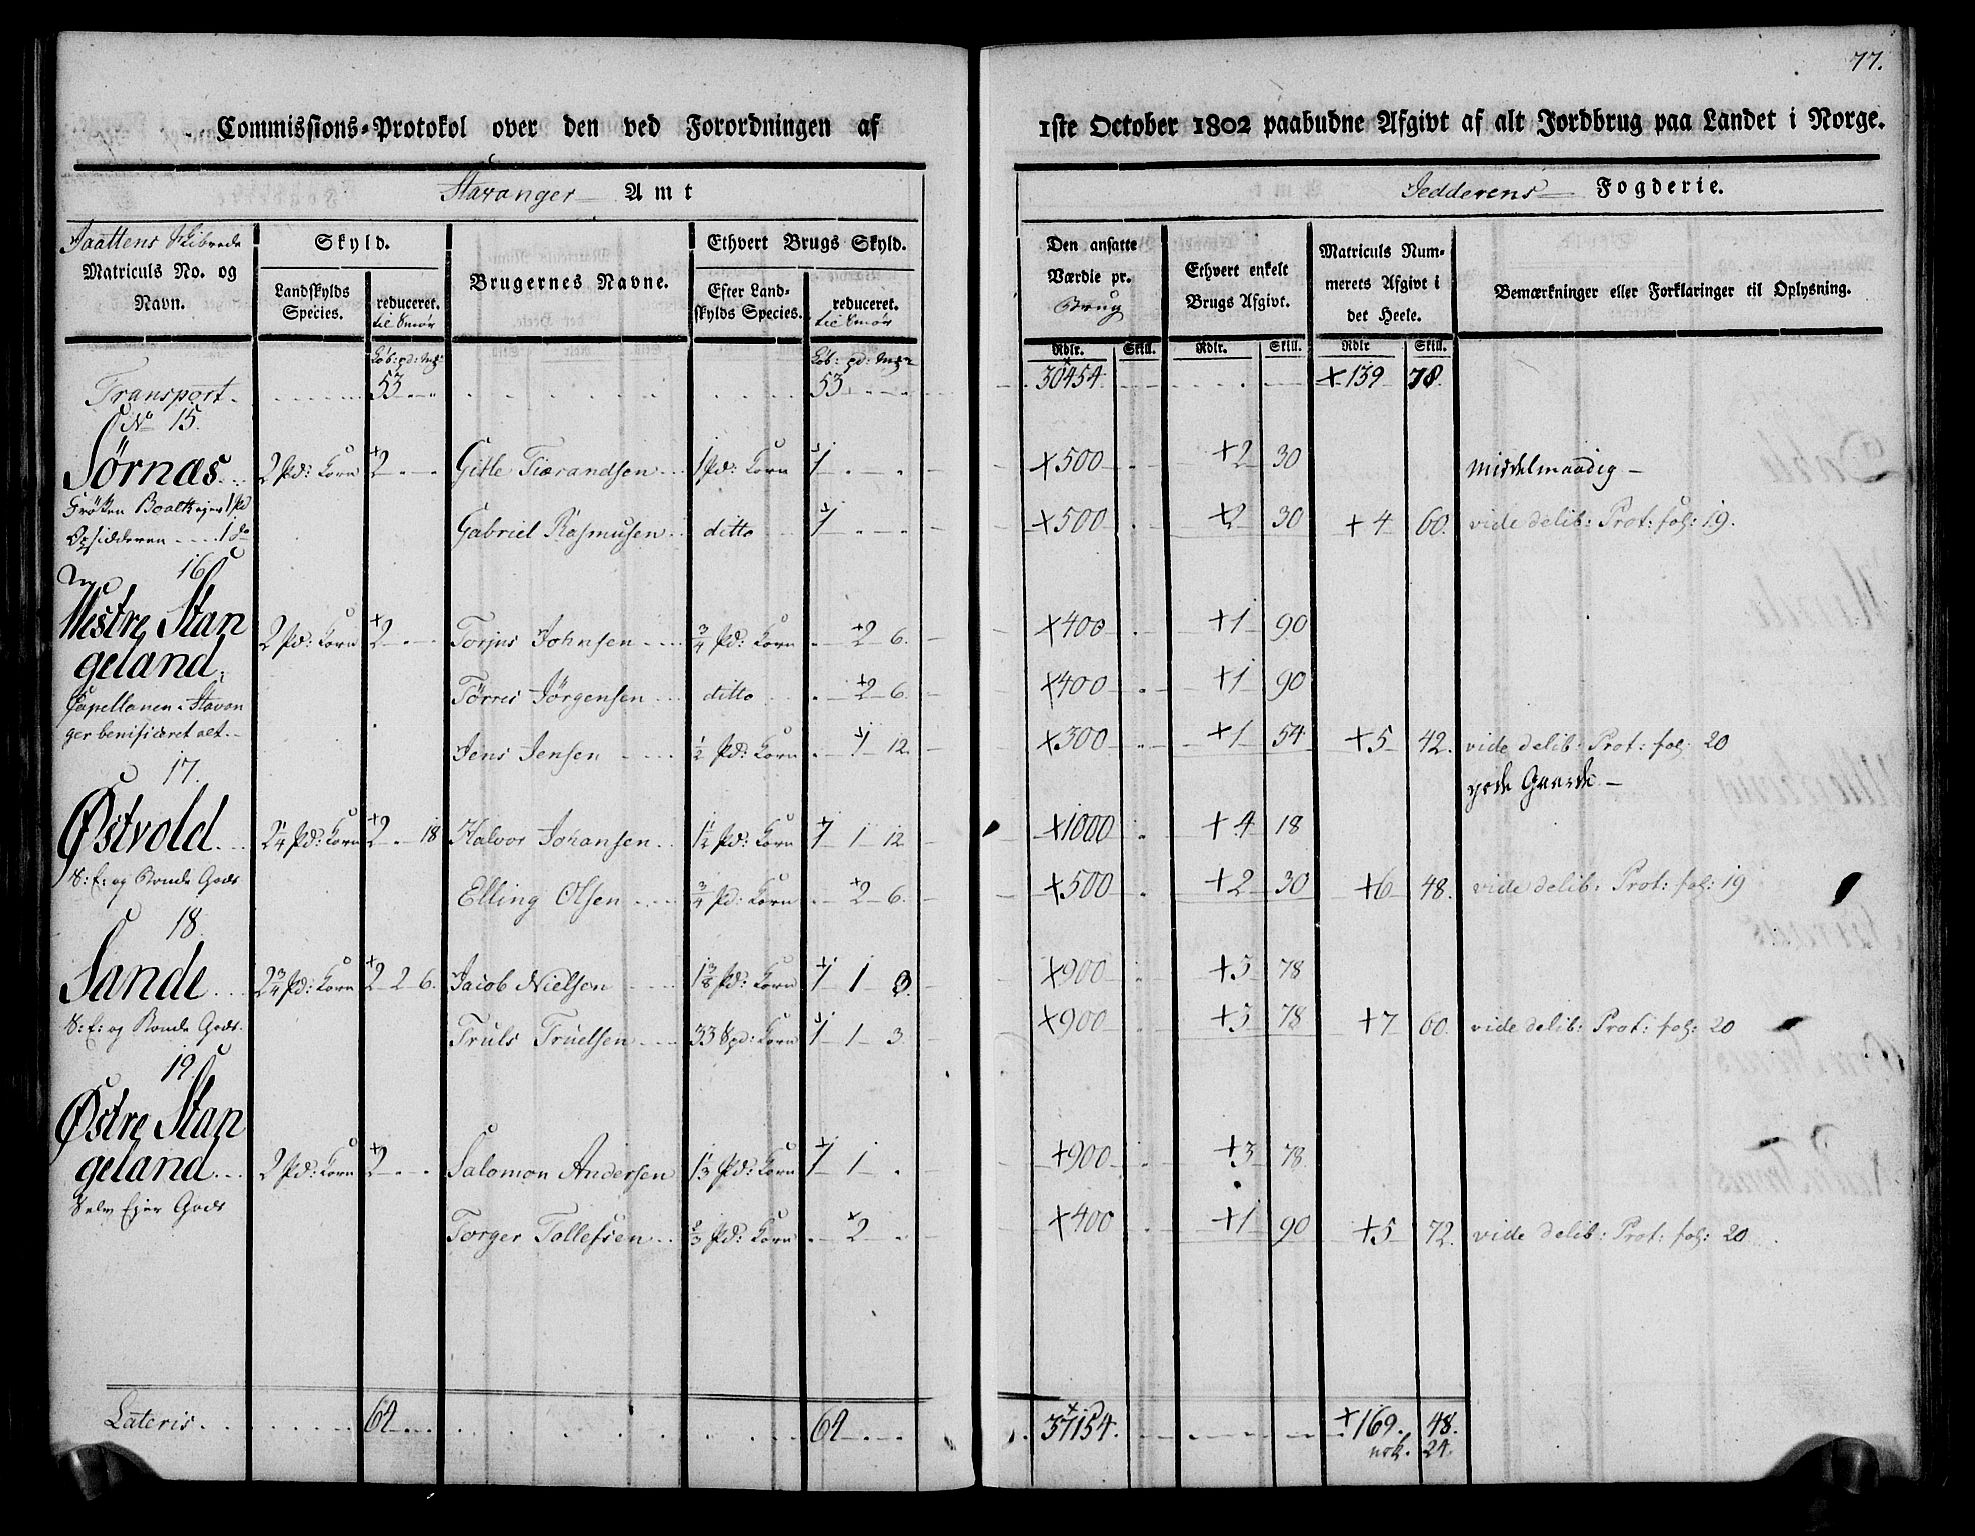 77.
Commissions-Protokol over den ved Forordningen af 1ste October 1802 paabudne Afgivt af alt Jordbrug paa Landet i Norge.
Stavanger Amt
Jedderens Fogderie.
Jaattens Skibrede
Matriculs No. og Navn.
Skyld.
Landskylds Species.
reduceret.
til Smör
Brugernes Navne.
Ethvert Brugs Skyld.
Efter Landskylds Species.
reduceret.
til Smör
Den ansatte Værdie pr. Brug
Ethvert enkelt Brugs Afgivt.
Matriculs Nummerets Afgivt i det Heele.
Bemærkninger eller Forklaringer til Oplysning.
Rdlr. Skill. Rdlr. Skill. Rdlr Skill.
Transport 53 53 30454 +139 78
No 15.
Sørnæs 2 Pd: Korn +2 Gitle Tiærandsen 1 Pd: Korn 1 +500 +2 30 middelmaadig
Frøken Boalt ejer 1 Pd
Opsidderen 1 do
Gabriel Rasmusen ditto 1 +500 +2 30 +4 60. vide delib: Prot: fol: 19.
16
Westre Stangeland 2 Pd: Korn +2 Torjus Johnsen 3/4 Pd: Korn +2 6. +400 +1 90
Tørres Jørgensen ditto +2 6. +400 +1 90
Capellanen i Stavanger benificeret alt.
Jens Jensen 1/2 Pd: Korn 1 12. +300 +1 54 +5 42. vide delib: Prot: fol: 20
17.
gode Gaarde
Østvold 2 1/4 Pd: Korn +2 18 Halvor Johansen 1 1/2 Pd: Korn 1 1 12 +1000 +4 18
S: E: og Bonde Gods
Elling Olsen 3/4 Pd: Korn +2 6. +500 +2 30 +6 48. vide delib: Prot: fol: 19
18.
Sande 2 3/4 Pd: Korn +2 2 6. Jacob Nielsen 1 3/8 Pd: Korn 1 1 3. +900 +3 78
S: E: og Bonde Gods.
Truls Truelsen 33 Spd: Korn 1 1 3. +900 +3 78 +7 60. vide delib: Prot: fol: 20
19.
Østre Stangeland 2 Pd: Korn +2 Salomon Andersen 1 1/3 Pd: Korn 1 1 +900 +3 78
Selv Ejer Gods
Torger Tollefsen 2/3 Pd: Korn 2 +400 +1 90 +5 72. vide delib: Prot: fol: 20
Lateris 64 64 37154. +169. 48.
nok. 24.